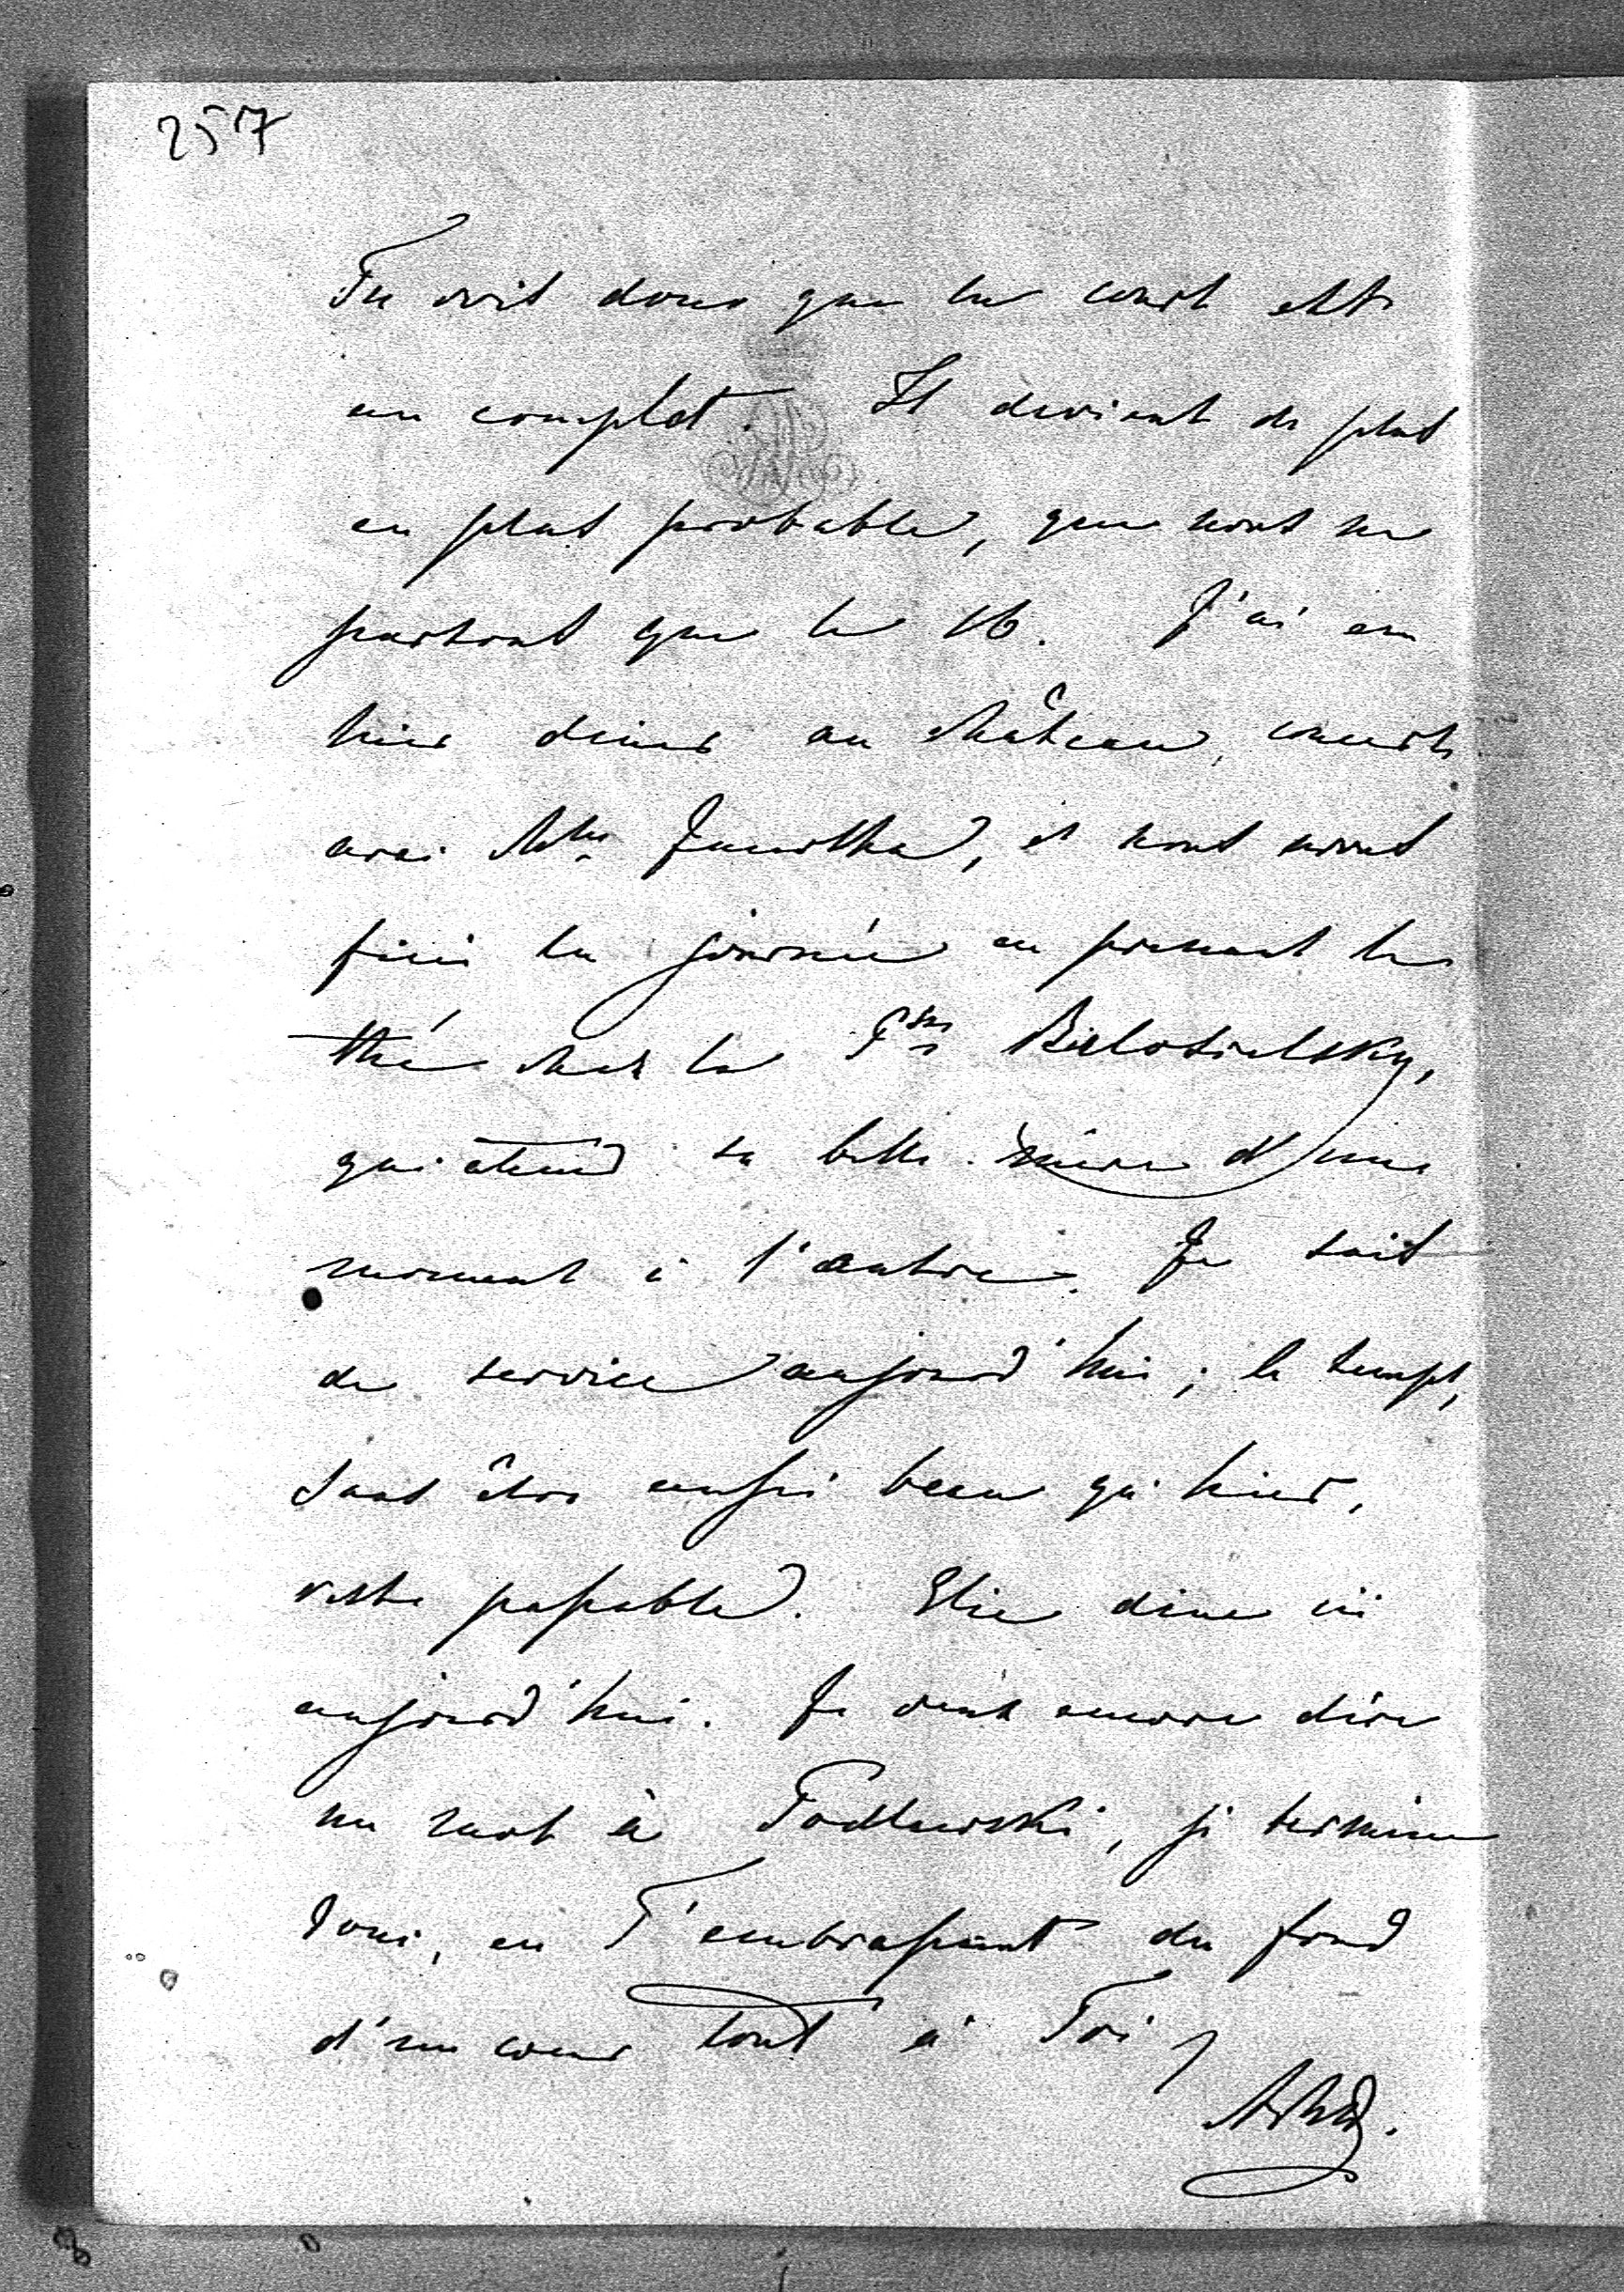 257
Tu vois donc que la court est
au complet. Il devient de plus
en plus probable, que nous ne
partons que le 16. J'ai eu
hier diner au château, concert
avec M<sup>me</sup> Jenotha, et nous avons
fini la journée en prenant le
thé chez la P<sup>sse</sup> Bielosselsky,
qui attend sa belle-mère d'un
moment à l'autre. Je suis
de service aujourd'hui; le temps,
sans être aussi beau qu'hier,
reste passable. Elie dine ici
aujourd'hui. Je veux encore dire
un mot à Podlewski, je termine
donc, en T'embrassant du fond
d'un cœur tout à Toi